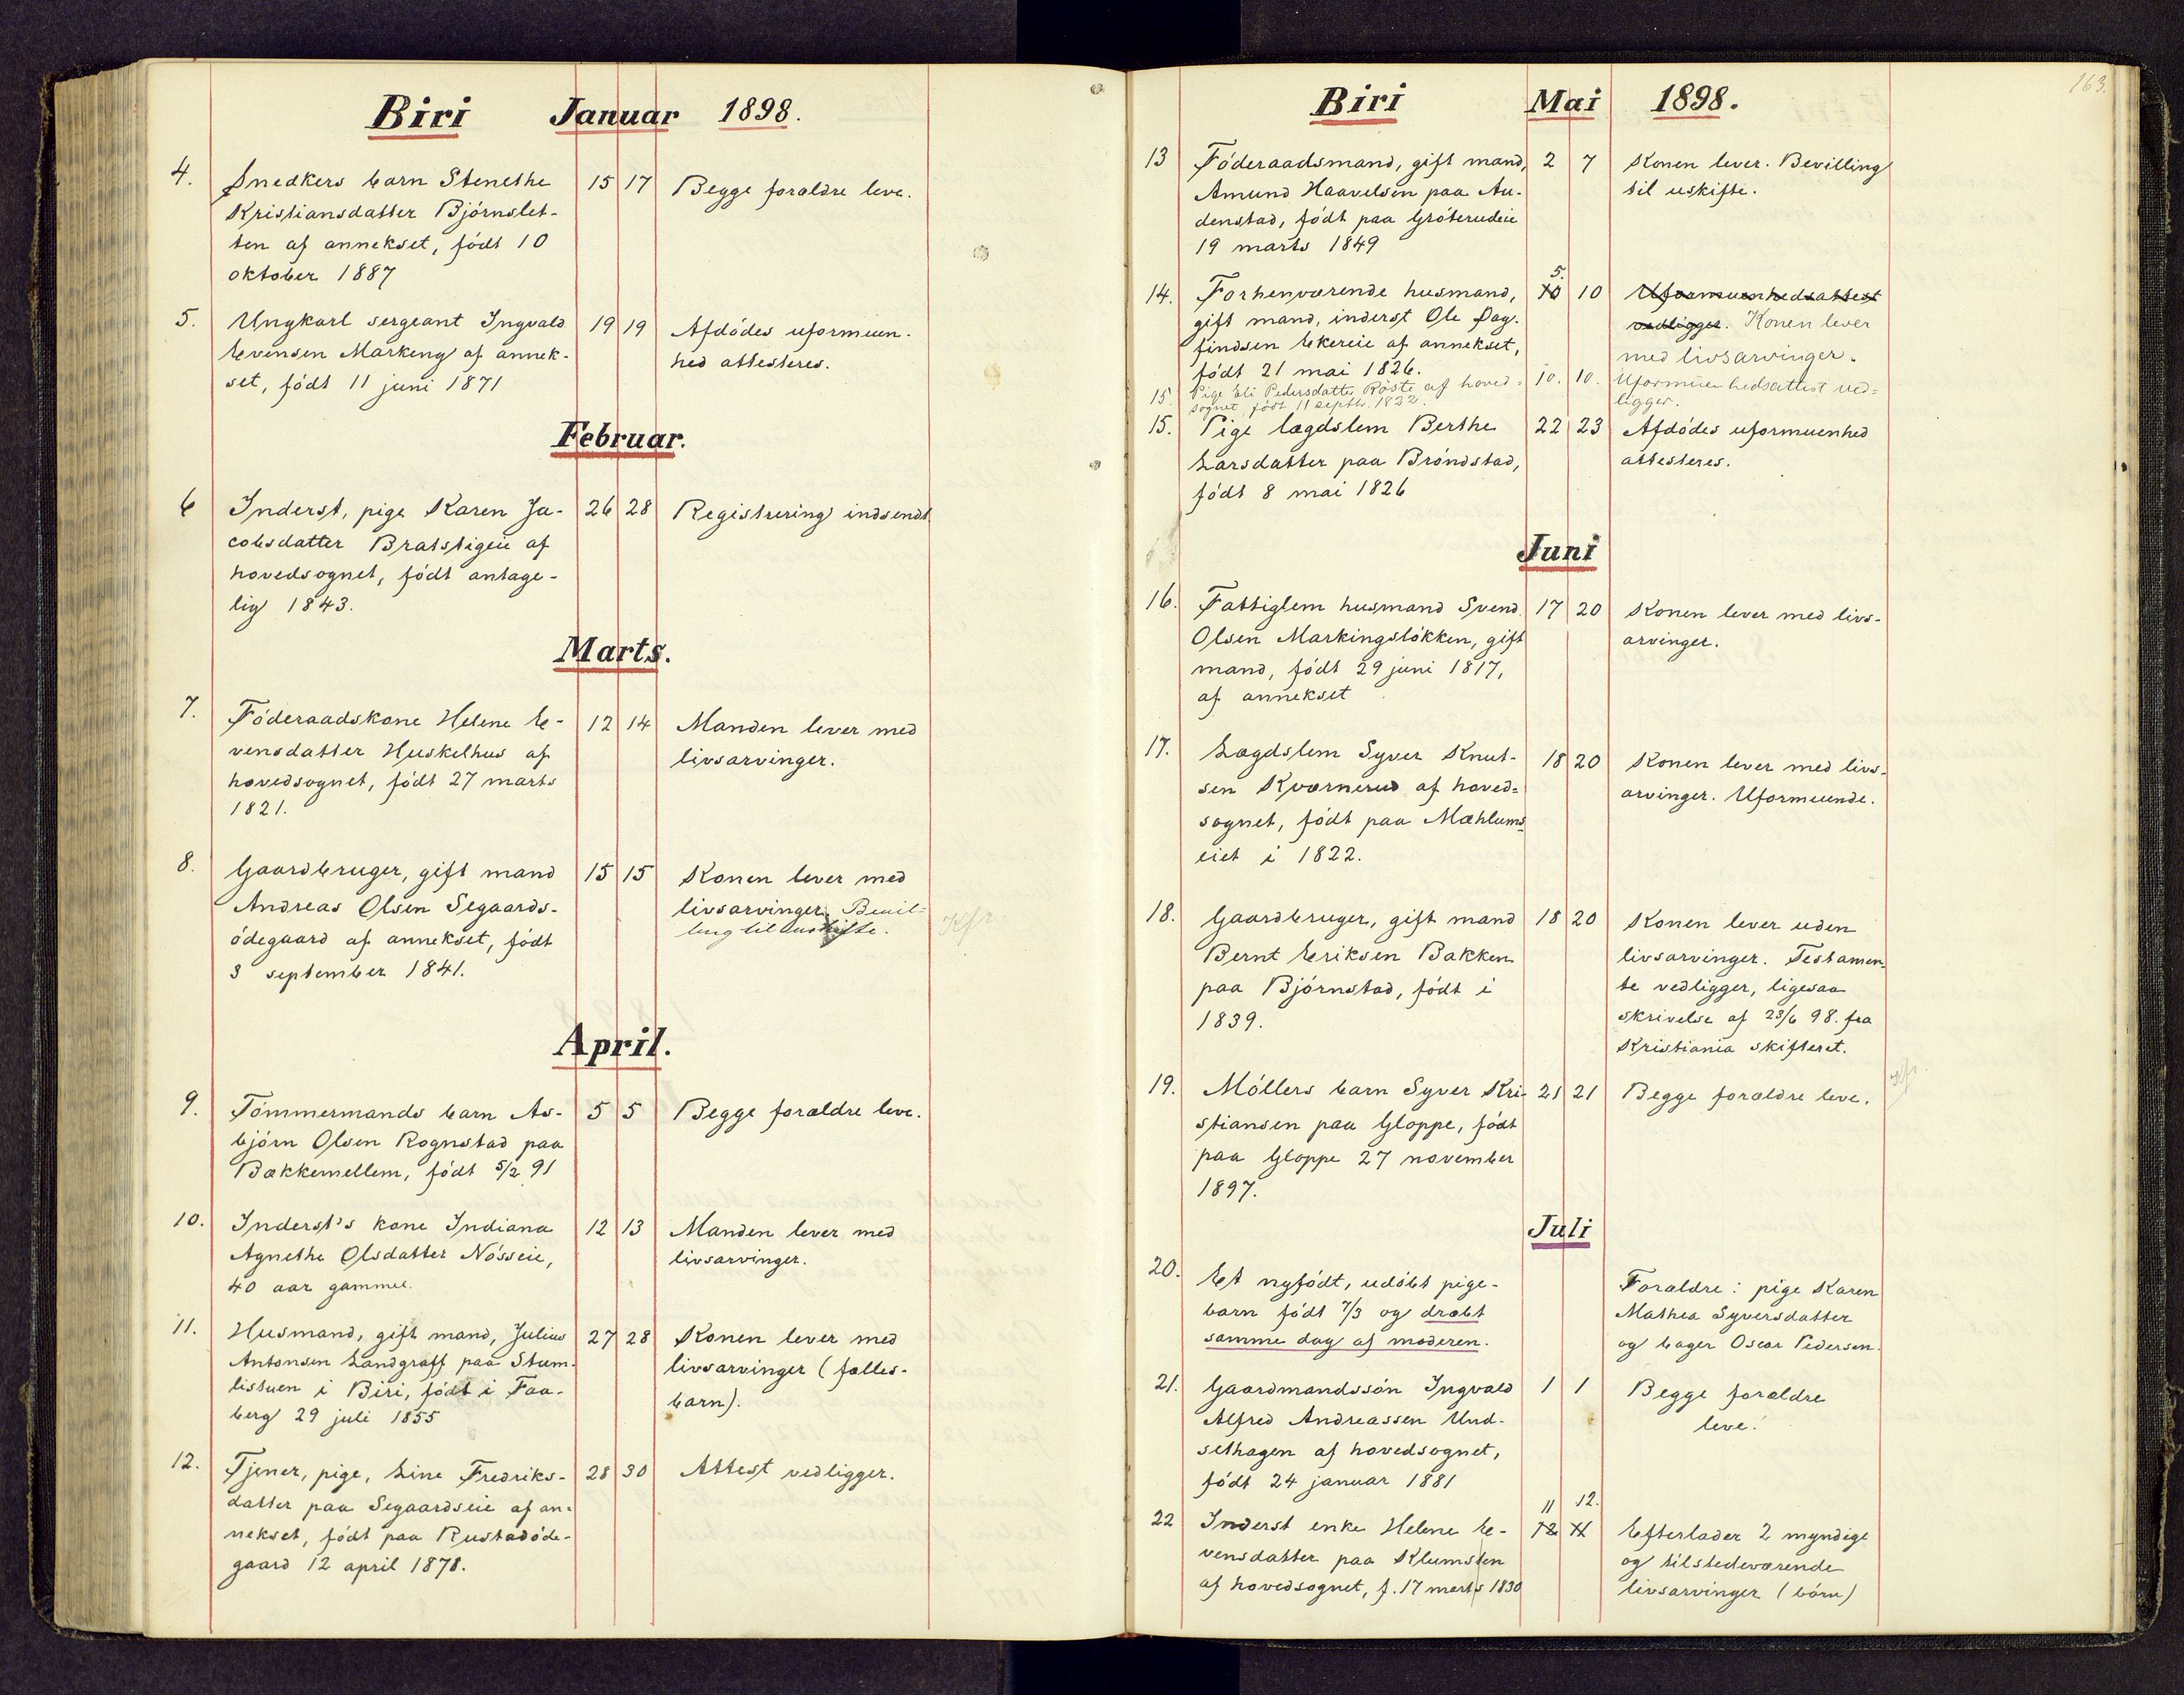 Biri Januar 1898.
4. Snedkers barn Stenethe 15 17 Begge forældre leve.
Kristiansdatter Björnslet-
ten af annekset, födt 10
oktober 1887
5. Ungkarl sergeant Ingvald 19 19 Afdödes uformuen-
Evensen Markeng af annek- hed attesteres.
set, födt 11 juni 1871
Februar.
6 Inderst, pige Karen Ja- 26 28 Registrering indsendt
cobsdatter Bratstigeie af
hovedsognet, födt antage-
lig 1843.
Marts.
7. Föderaadskone Helene E- 12 14 Manden lever med
vensdatter Huskelhus af livsarvinger.
hovedsognet, födt 27 marts
1821.
8. Gaardbruger, gift mand 15 15 Konen lever med
Andreas Olsen Segaards- livsarvinger. Bevil-
ödegaard af annekset, födt ling til uskifte.
3 september 1841.
April.
9. Tömmermands barn As- 5 5 Begge forældre leve.
björn Olsen Rognstad paa
Bækkemellem, födt 5/2 91
10. Inderst's kone Indiana 12 13 Manden lever med
Agnethe Olsdatter Nösseie, livsarvinger.
40 aar gammel.
11. Husmand, gift mand, Julius 27 28 Konen lever med
Antonsen Landgraff paa Stum- livsarvinger (fælles-
listuen i Biri, födt i Faa- barn).
berg 29 juli 1855
12. Tjener, pige, Line Fredriks- 28 30 Attest vedligger.
datter paa Segaardseie af an-
nekset, födt paa Rustadöde-
gaard 12 april 1878.
163.
Biri Mai 1898.
13 Föderaadsmand, gift mand, 2 7 Konen lever. Bevilling
Amund Haavelsen paa Au- til uskifte.
denstad, födt paa Gröterudeie
19 marts 1849
5.
14. Forhenværende husmand, 10 10 Uformuenhedsattest
gift mand, inderst Ole Dag- vedligger. Konen lever
findsen Ekereie af annekset, med livsarvinger.
födt 21 mai 1826.
15. Pige Eli Pedersdatter Röste af hoved- 10. 10. Uformuenhedsattest ved-
sognet, födt 11 septbr. 1832. ligger.
15. Pige lægdslem Berthe 22 23 Afdödes uformuenhed
Larsdatter paa Bröndstad, attesteres.
födt 8 mai 1826
Juni
16. Fattiglem husmand Svend 17 20 Konen lever med livs-
Olsen Markingslökken, gift arvinger.
mand, födt 29 juni 1817,
af annekset
17. Lægdslem Syver Knut- 18 20 Konen lever med livs-
sen Kværnerud af hoved- arvinger. Uformuende.
sognet, födt paa Mæhlums
eiet i 1822.
18. Gaardbruger, gift mand 18 20 Konen lever uden
Bernt Eriksen Bakken livsarvinger. Testamen-
paa Björnstad, födt i te vedligger, ligesaa
1839. skrivelse af 23/6 98. fra
Kristiania skifteret.
19. Möllers barn Syver Kri- 21 21 Begge forældre leve.
stiansen paa Gloppe, födt
paa Gloppe 27 november
1897.
Juli
20. Et nyfödt, udöbt pige- Forældre: pige Karen
barn födt 7/3 og dræbt Mathea Syversdatter
samme dag af moderen. og bager Oscar Pedersen.
21. Gaardmandssön Ingvald 1 1 Begge forældre
Alfred Andreassen Und- leve.
sethagen af hovedsognet,
födt 24 januar 1881
11 12.
22 Inderst enke Helene E- 12 11 Efterlader 2 myndige
vensdatter paa Klumsten og tilstedeværende
af hovedsognet, f. 17 marts 1830 livsarvinger (börn)